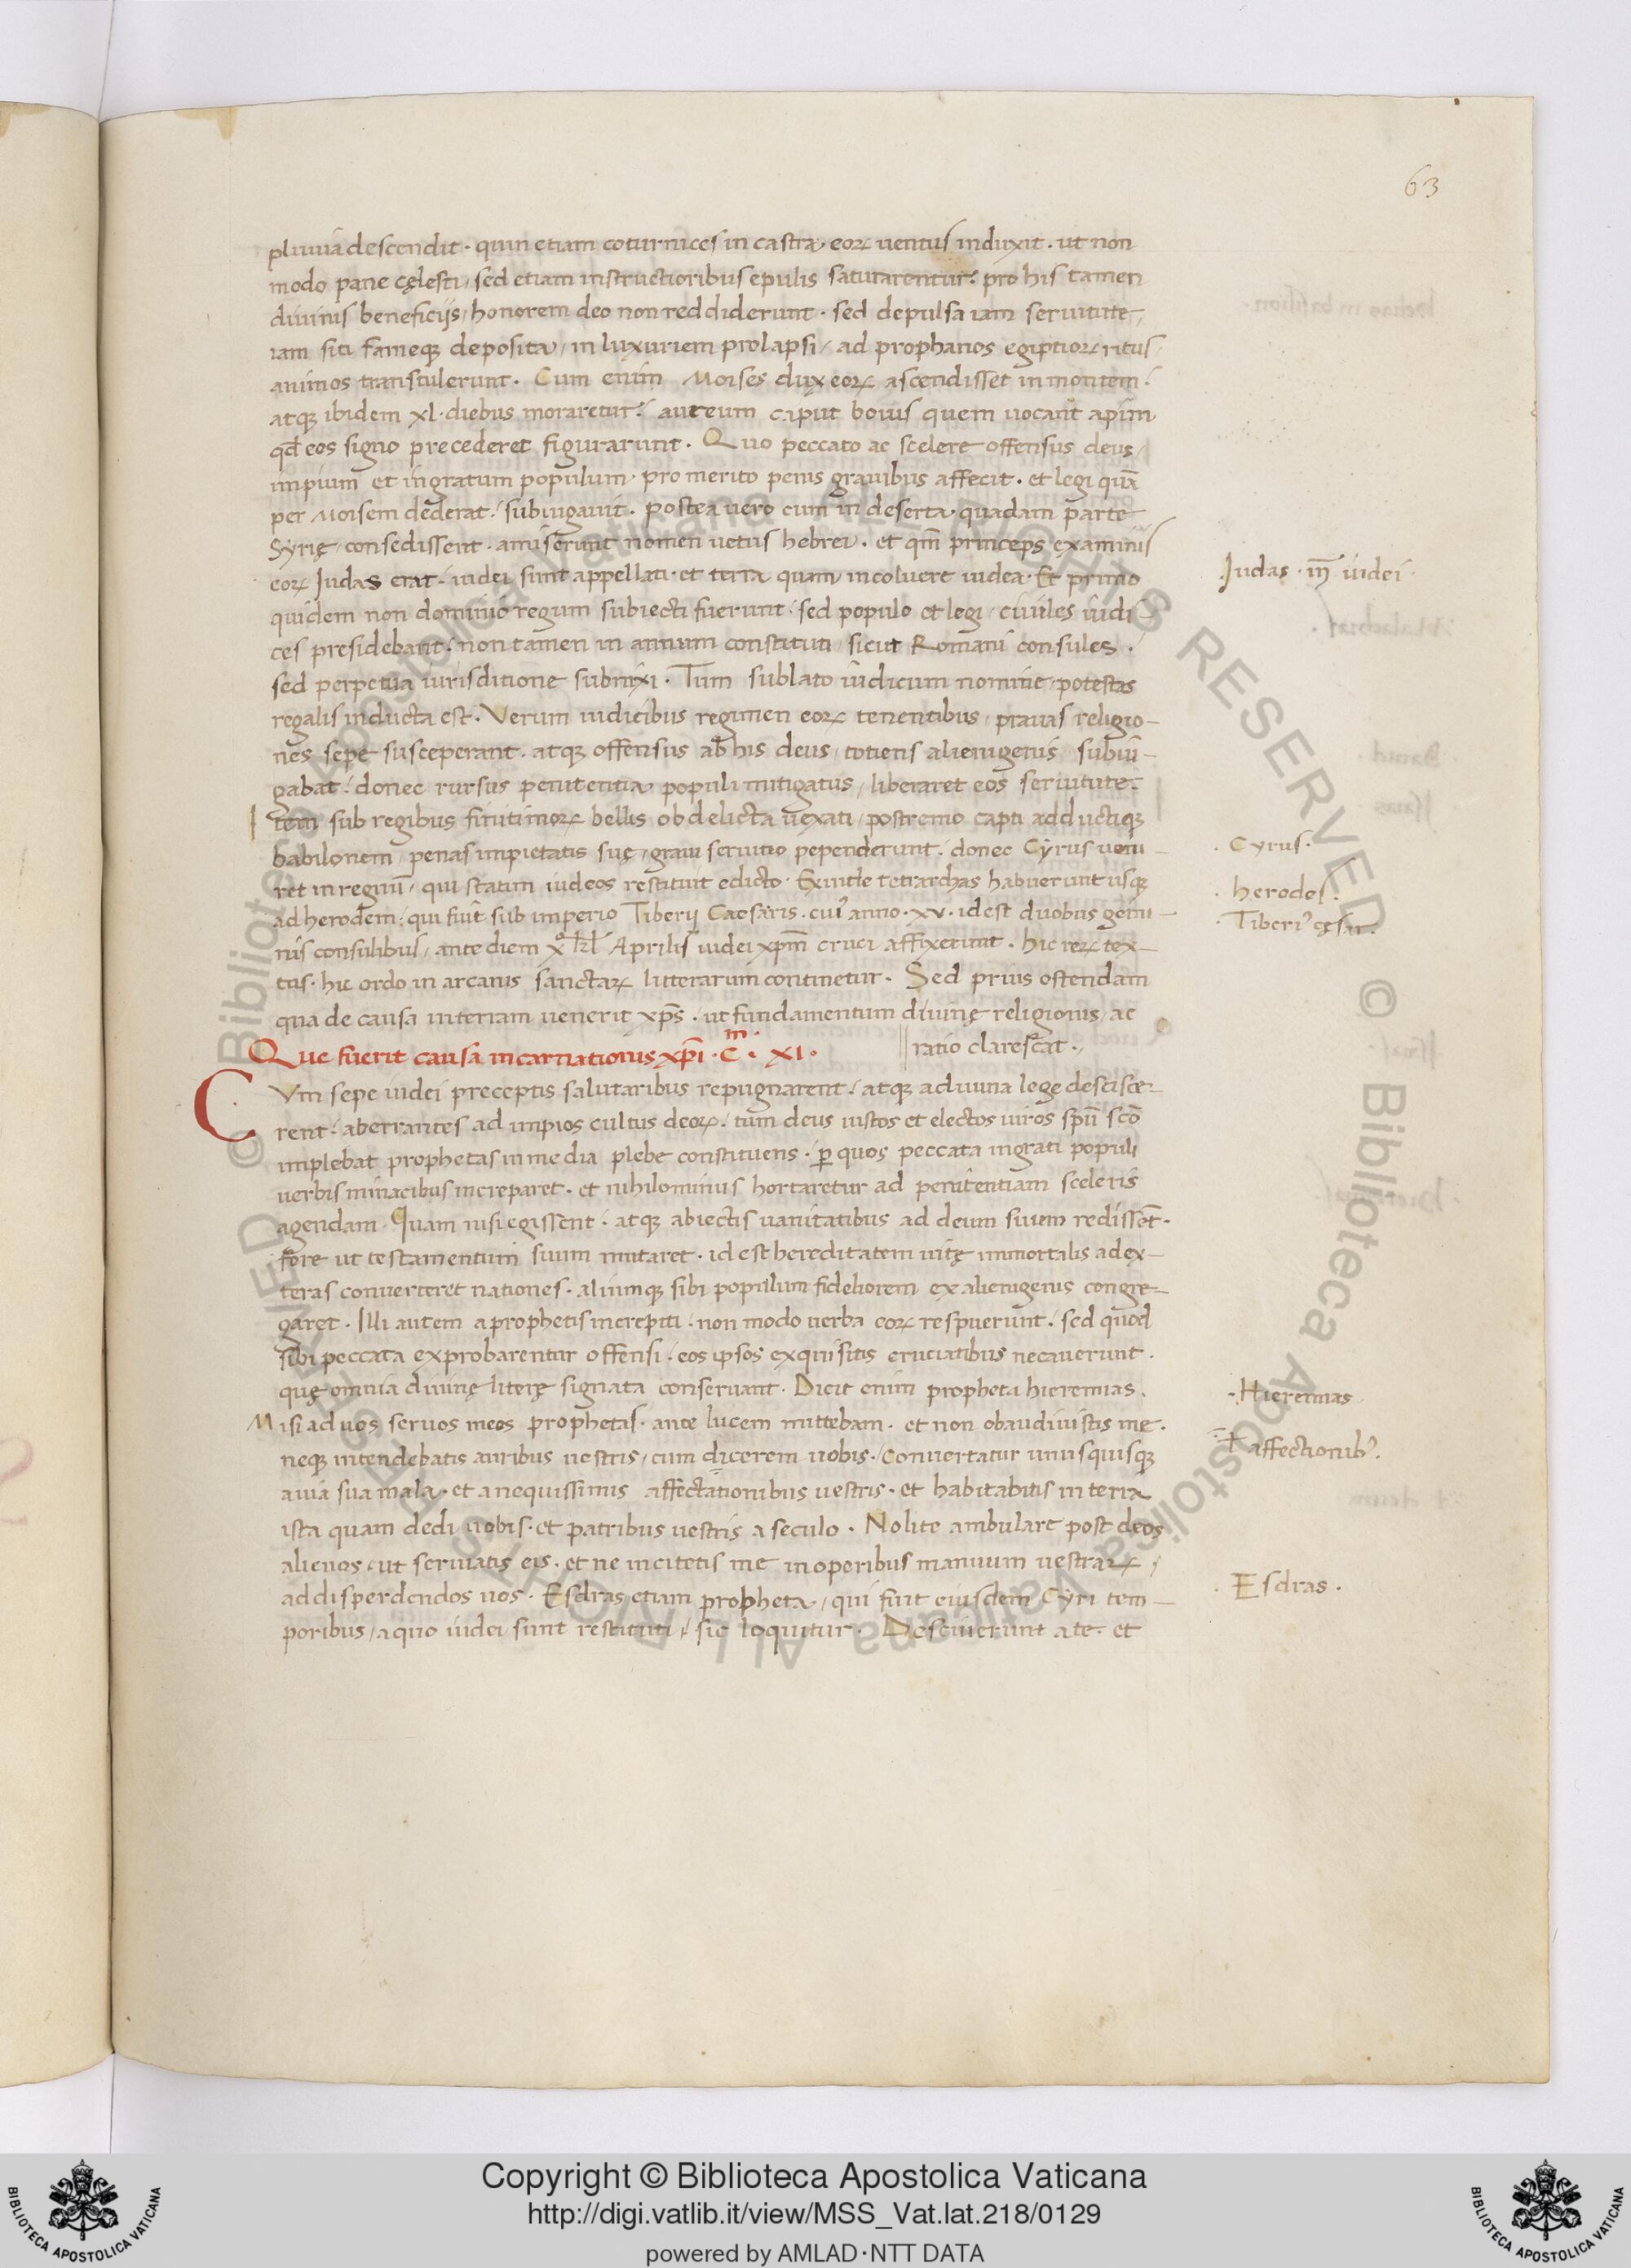 63
pluuia descendit · quin etiam coturnices in castra eoꝝ uentus induxit · ut non
modo pane cęlesti / sed etiam instructioribus epulis saturarentur · pro his tamen
diuinis beneficijs / honorem deo non reddiderunt · sed depulsa iam seruitute /
iam siti fameqꝫ deposita / in luxuriem prolapsi / ad prophanos egiptioꝝ ritus
animos transtulerunt · Cum enim Moises dux eoꝝ ascendisset in montem ·
atqꝫ ibidem xl · diebus moraretur · aureum caput bouis quem uocant apim
qđ eos signo precederet figurarunt · Quo peccato ac scelere offensus deus /
impium et ingratum populum · pro merito penis grauibus affecit · et legi quā
per Moisem dederat · subiugauit · postea uero cum in deserta quadam parte
Syrię / consedissent · amiserunt nomen uetus hebrei · et qm̄ princeps examinis
eoꝝ Iudas erat · iudei sunt appellati · et terra quam incoluere iudea · Et primo
quidem non dominio regum subiecti fuerunt · sed populo et legi / ciuiles iudi–
ces presidebant · non tamen in annum constituti / sicut Romani consules ·
sed perpetua iurisditione subnixi · Tum sublato iudicum nomine / potestas
regalis inducta est · Verum iudicibus regimen eoꝝ tenentibus / prauas religio–
nes sepe susceperant · atqꝫ offensus ab his deus / totiens alienigenis subiu–
gabat · donec rursus penitentia populi mitigatus / liberaret eos seruitute ·
Item sub regibus finitimoꝝ bellis ob delicta uexati / postremo capti adductiqꝫ
babilonem / penas impietatis suę / graui seruitio pependerunt · donec Cyrus ueni–
ret in regnū / qui statim iudeos restituit edicto · Exinde tetrarchas habuerunt usqꝫ
ad herodem · qui fuit sub imperio Tiberij Caesaris · cuiꝰ anno · xv · id est duobus gemi–
nis consulibus / ante diem xº kł Aprilis iudei xp̄m cruci affixerunt · hic reꝝ tex–
tus · hic ordo in arcanis sanctaꝝ litterarum continetur · Sed prius ostendam
qua de causa in terram uenerit xp̄s · ut fundamentum diuinę religionis / ac
ratio clarescat ·
Que fuerit causa incarnationis xp̄i · Cᵐ · XI ·
CVm sepe iudei preceptis salutaribus repugnarent · atqꝫ a diuina lege desciscer–
rent · aberrantes ad impios cultus deoꝝ · tum deus iustos et electos uiros sp̄u scō
implebat prophetas in media plebe constituens · ꝑ quos peccata ingrati populi
uerbis minacibus increparet · et nihilominus hortaretur ad penitentiam sceleris
agendam · Quam nisi egissent · atqꝫ abiectis uanitatibus ad deum suum redissent ·
fore ut testamentum suum mutaret · id est hereditatem uitę immortalis ad ex–
teras conuerteret nationes · aliumqꝫ sibi populum fideliorem ex alienigenis congre–
garet · Illi autem a prophetis increpiti · non modo uerba eoꝝ respuerunt · sed quod
sibi peccata exprobarentur offensi · eos ipsos exquisitis cruciatibus necauerunt ·
quę omnia diuinę literę signata conseruant · Dicit enim propheta hieremias ·
Misi ad uos seruos meos prophetas · ante lucem mittebam · et non obaudiuistis me ·
neqꝫ intendebatis auribus uestris / cum dicerem uobis · Conuertatur unusquisqꝫ
a uia sua mala · et a nequissimis affectationibus uestris · et habitabitis in terra
ista quam dedi uobis · et patribus uestris a seculo · Nolite ambulare post deos
alienos · ut seruiatis eis · et ne incitetis me in operibus manuum uestraꝝ /
ad disperdendos uos · Esdras etiam propheta / qui fuit eiusdem Cyri tem–
poribus / a quo iudei sunt restituti / sic loquitur · Desciuerunt a te · et
Iudas · iudei ·
· Cyrus ·
· herodes ·
· Tiberiꝰ cęsar ·
· Hieremias
affectionibꝰ ·
· Esdras ·
© Biblioteca Apostolica Vaticana ALL RIGHTS RESERVED
© Biblioteca Apostolica Vaticana ALL RIGHTS RESERVED
Copyright © Biblioteca Apostolica Vaticana
http://digi.vatlib.it/view/MSS_Vat.lat.218/0129
powered by AMLAD·NTT DATA
BIBLIOTECA APOSTOLICA VATICANA
BIBLIOTECA APOSTOLICA VATICANA